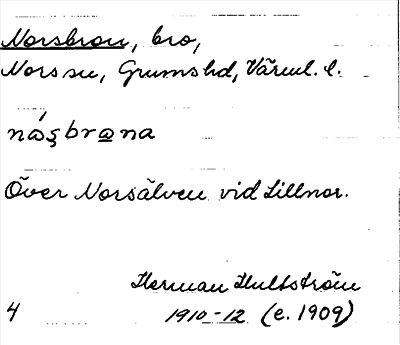 Norsbron, bro,
Nors sn, Grums hd, Värml. l.
nǻʂbrana
Över Norsälven vid Lillnor.
Herman Hultström
4 1910-12 (e. 1909)